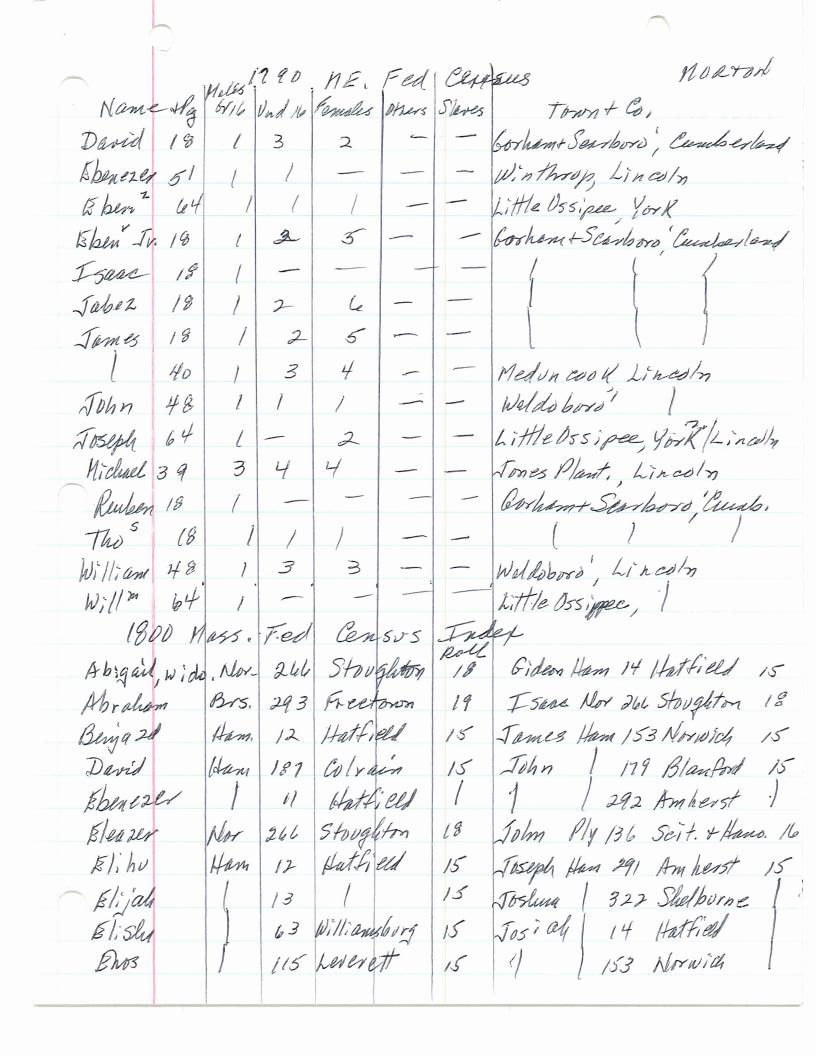 1790 ME. Fed Census NORTON
Name + Pg Males Ov 16 Und 16 Females Others Slaves Town + Co.
David 18 1 3 2 — — Gorham + Scarboro', Cumberland
Ebenezer 51 1 1 — — — Winthrop, Lincoln
Eben^z 64 1 1 1 — — Little Ossipee, York
Eben^r Jr. 18 1 2 5 — — Gorham + Scarboro', Cumberland
Isaac 18 1 — — — —
Jabez 18 1 2 6 — —
James 18 1 2 5 — —
40 1 3 4 — — Meduncook Lincoln
John 48 1 1 1 — — Waldoboro'
Joseph 64 1 — 2 — — Little Ossipee, York?/Lincoln
Michael 39 3 4 4 — — Jones Plant., Lincoln
Reuben 18 1 — — — — Gorham + Scarboro', Cumb.
Tho^s 18 1 1 1 — —
William 48 1 3 3 — — Waldoboro', Lincoln
Will^m 64 1 — — — — Little Ossippee,
1800 Mass. Fed Census Index
Roll
Abigail, wido. Nor- 266 Stoughton 18 Gideon Ham 14 Hatfield 15
Abraham Brs. 293 Freetown 19 Isaac Nor 266 Stoughton 18
Benja 2d Ham. 12 Hatfield 15 James Ham 153 Norwich 15
David Ham 187 Colrain 15 John 179 Blanford 15
Ebenezer 11 Hatfield " 292 Amherst
Eleazer Nor 266 Stoughton 18 John Ply 136 Scit. + Hano. 16
Elihu Ham 12 Hatfield 15 Joseph Ham 291 Amherst 15
Elijah 13 15 Joshua 322 Shelburne
Elisha 63 Williamsburg 15 Josiah 14 Hatfield
Enos 115 Leverett 15 " 153 Norwich